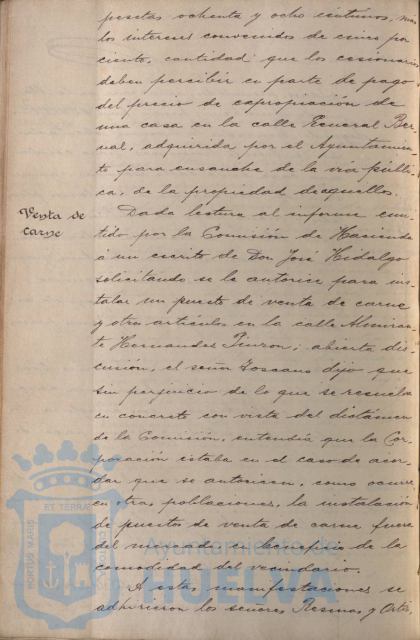 pesetas ochenta y ocho céntimos, mas
los intereses convenidos de cinco por
ciento, cantidad que los cesionarios
deben percibir en parte de pago
del precio de expropiación de
una casa en la calle General Ber
nal, adquirida por el Ayuntamien
to para ensanche de la vía públi
ca, de la propiedad de aquellos.
Venta de
carne
Dada lectura al informe emi
tido por la Comisión de Hacienda
á un escrito de Don José Hidalgo
solicitando se le autorice para ins
talar un puesto de venta de carne
y otros artículos en la calle Almiran
te Hernandez Pinzon; abierta dis
cusión, el señor Toscano dijo que
sin perjuicio de lo que se resuelva
en concreto con vista del dictámen
de la Comisión, entendía que la Cor
poración estaba en el caso de acor
dar que se autoricen, como ocurre
en otras poblaciones, la instalación
de puestos de venta de carne fuera
del mercado a beneficio de la
comodidad del vecindario.
A estas manifestaciones se
adhirieron los señores Resinas y Ortiz
PORTUS MARIS
ET TERRAE
CUSTODIA
Ayuntamiento de
HUELVA